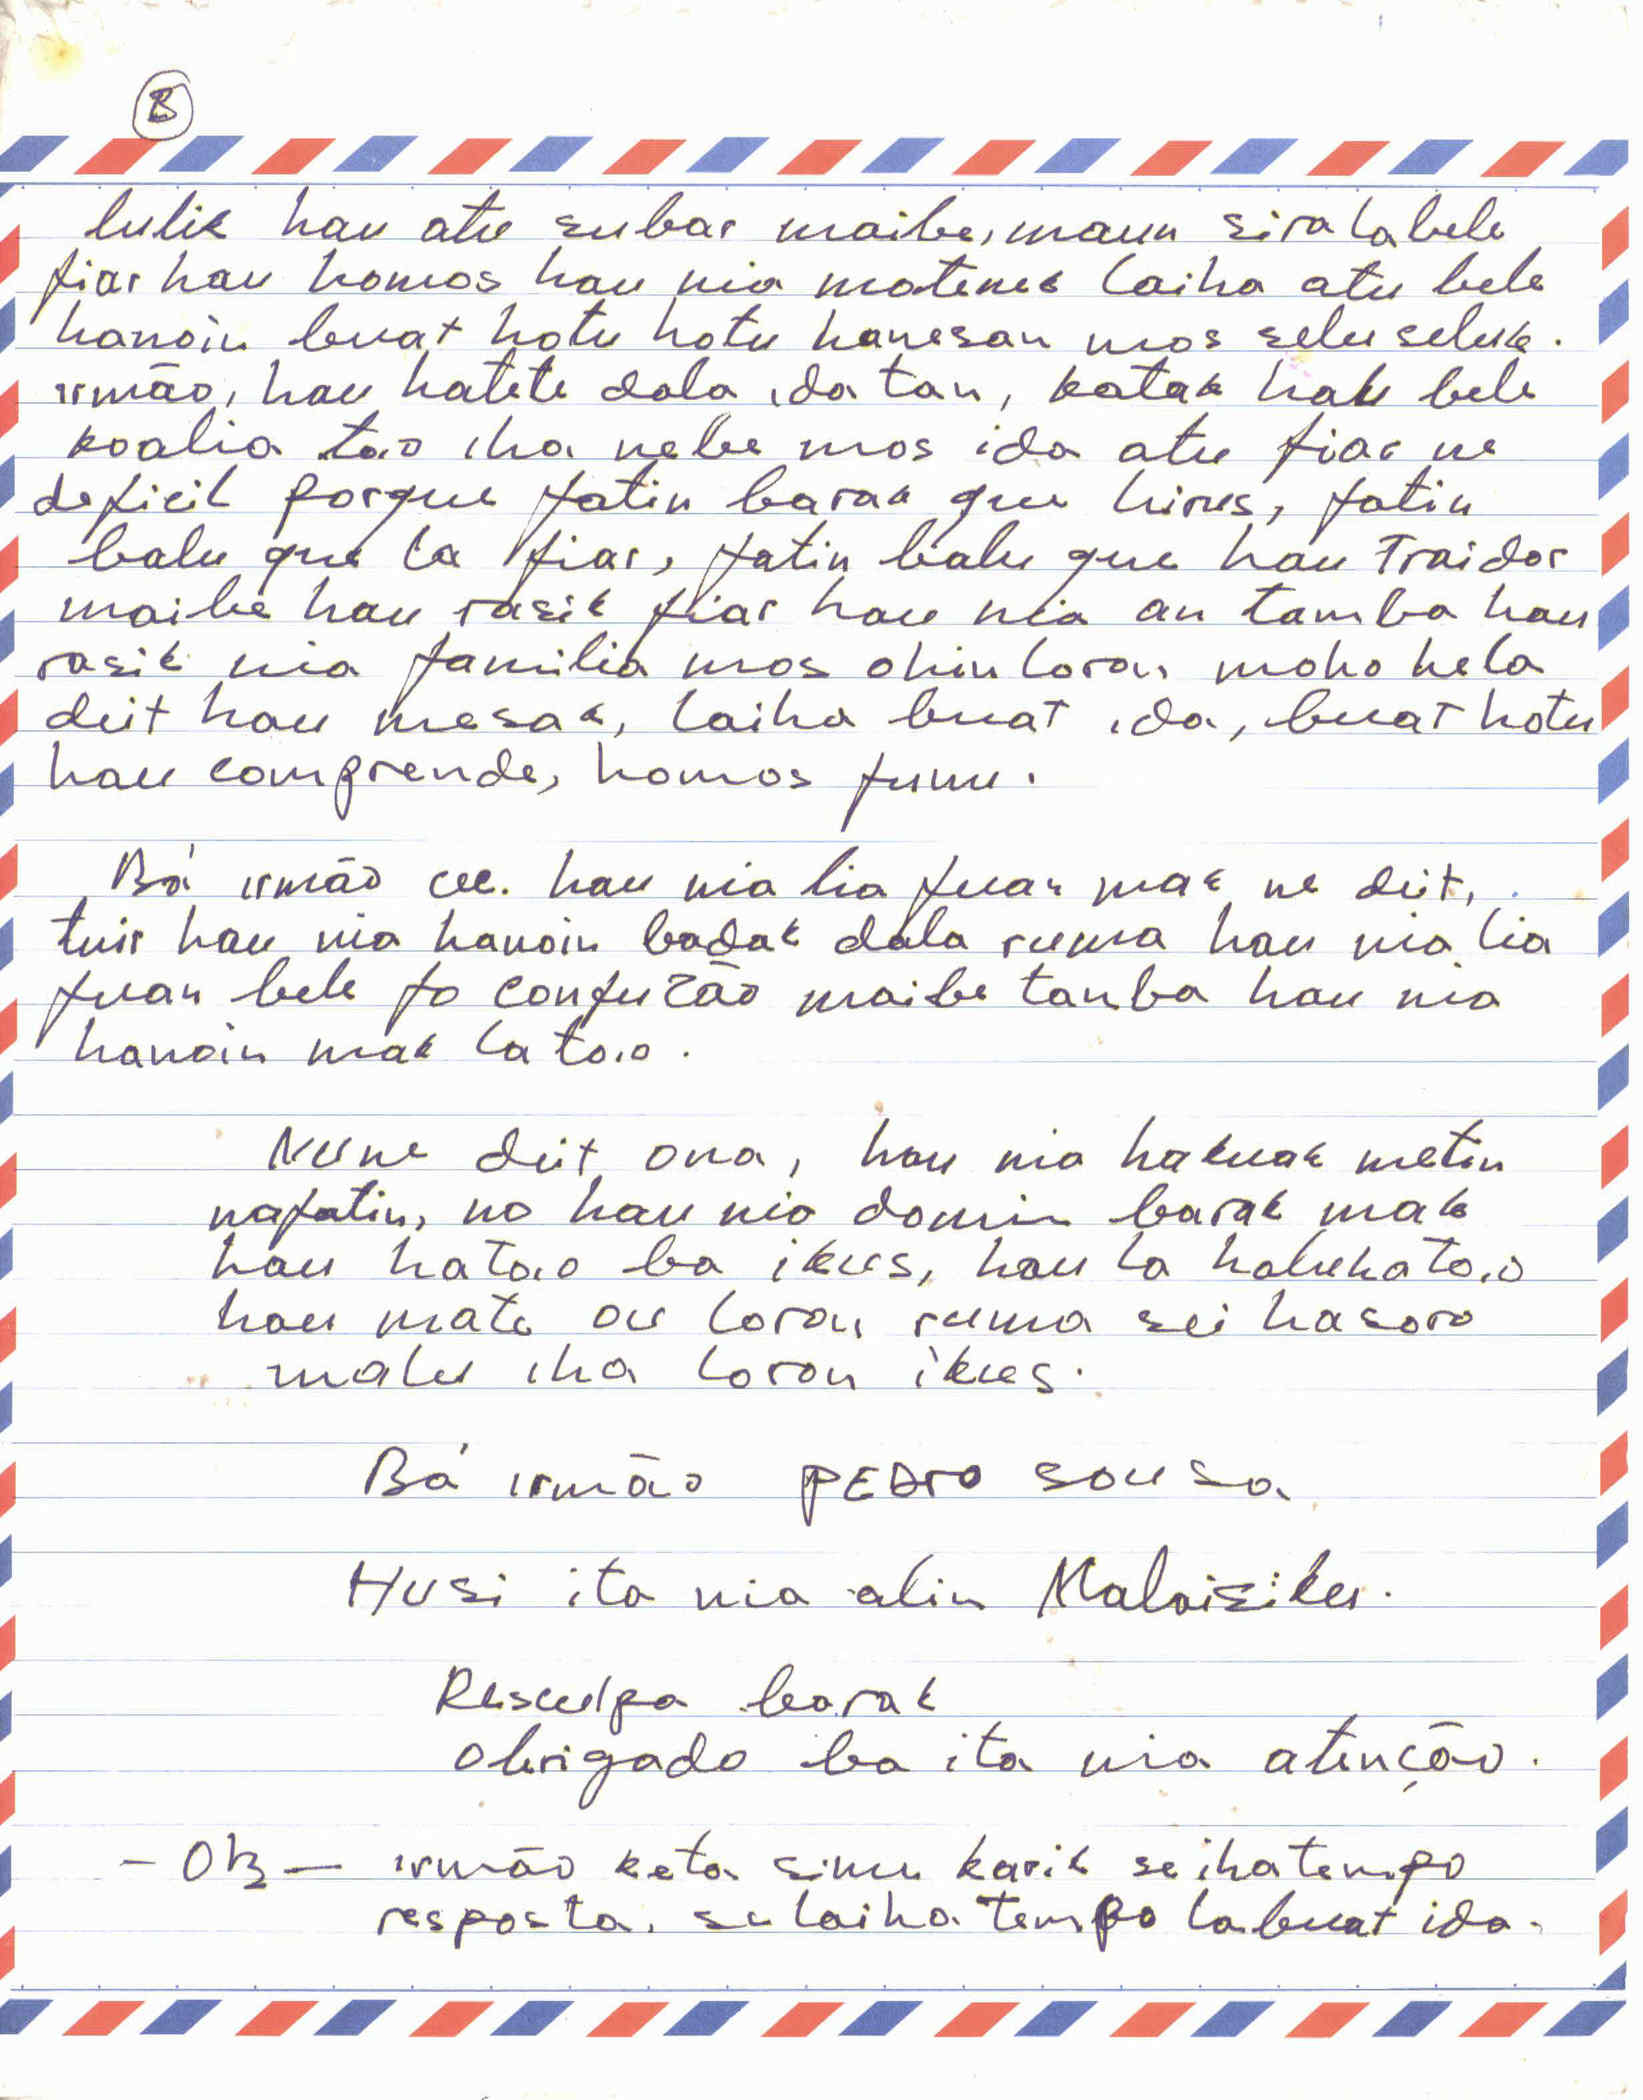 B
lulik hau atu subar maibe, maun sira labele
fiar hau homos hau nia matenek laiha atu bele
hanoin buat hotu hotu hanesan mos selu seluk.
irmão, hau hatete dala ida tan, katak hau bele
koalia to.o iha nebe mos ida atu fiar ne
deficil porque fatin barak que hirus, fatin
balu que la fiar, fatin balu que hau Traidor
maibe hau rasik fiar hau nia an tamba hau
rasik nia familia mos ohin loron moho hela
deit hau mesak, laiha buat ida, buat hotu
hau comprende, homos funu.
Bá irmão cec. hau nia lia fuan mak ne deit,
tuir hau nia hanoin badak dala ruma hau nia lia
fuan bele fo confuzão maibe tanba hau nia
hanoin mak la to.o.
NUne deit ona, hau nia hakuak metin
nafatin, no hau nia domin barak mak
hau hato.o ba ikus, hau la haluhato.o
hau mate ou loron ruma sei hasoro
malu iha loron ikus.
Bá irmão PEDro sousa
Husi ita nia alin Malaisiku.
Desculpa barak
obrigado ba ita nia atenção.
- OB — irmão keta simu karik se iha tempo
resposta. se laiha Tempo labuat ida.